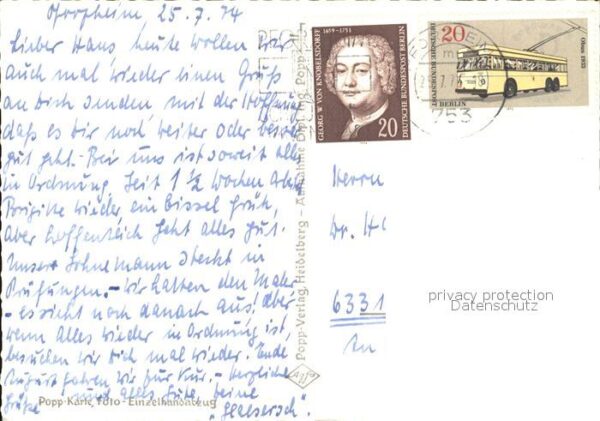 Pforzheim 25.7.74
Lieber Hans heute wollen wir
auch mal wieder einen Gruß
an Dich senden mit der Hoffnung
daß es Dir noch weiter oder besser
gut geht. - Bei uns ist soweit alles
in Ordnung. Seit 1 1/2 Wochen
Brigitte wieder ein bissel
aber hoffentlich geht alles gut.
Unser Sohnemann steckt in
Prüfungen. - Wir hatten den Maler
- es sieht noch danach aus! Aber
wenn alles wieder in Ordnung ist,
besuchen wir Dich mal wieder. Ende
August fahren wir zur Kur. - Herzliche
Grüße und alles Gute, Deine
Popp-Karte, Foto - Einzelhandabzug
Popp-Verlag, Heidelberg - Aufnahme Dipl. Ing. Popp
1699-1753
GEORG W. VON KNOBELSDORFF
DEUTSCHE BUNDESPOST BERLIN
20
20
Obus 1933
DEUTSCHE BUNDESPOST
BERLIN
753
Herrn
Dr. H
6331
An
privacy protection
Datenschutz